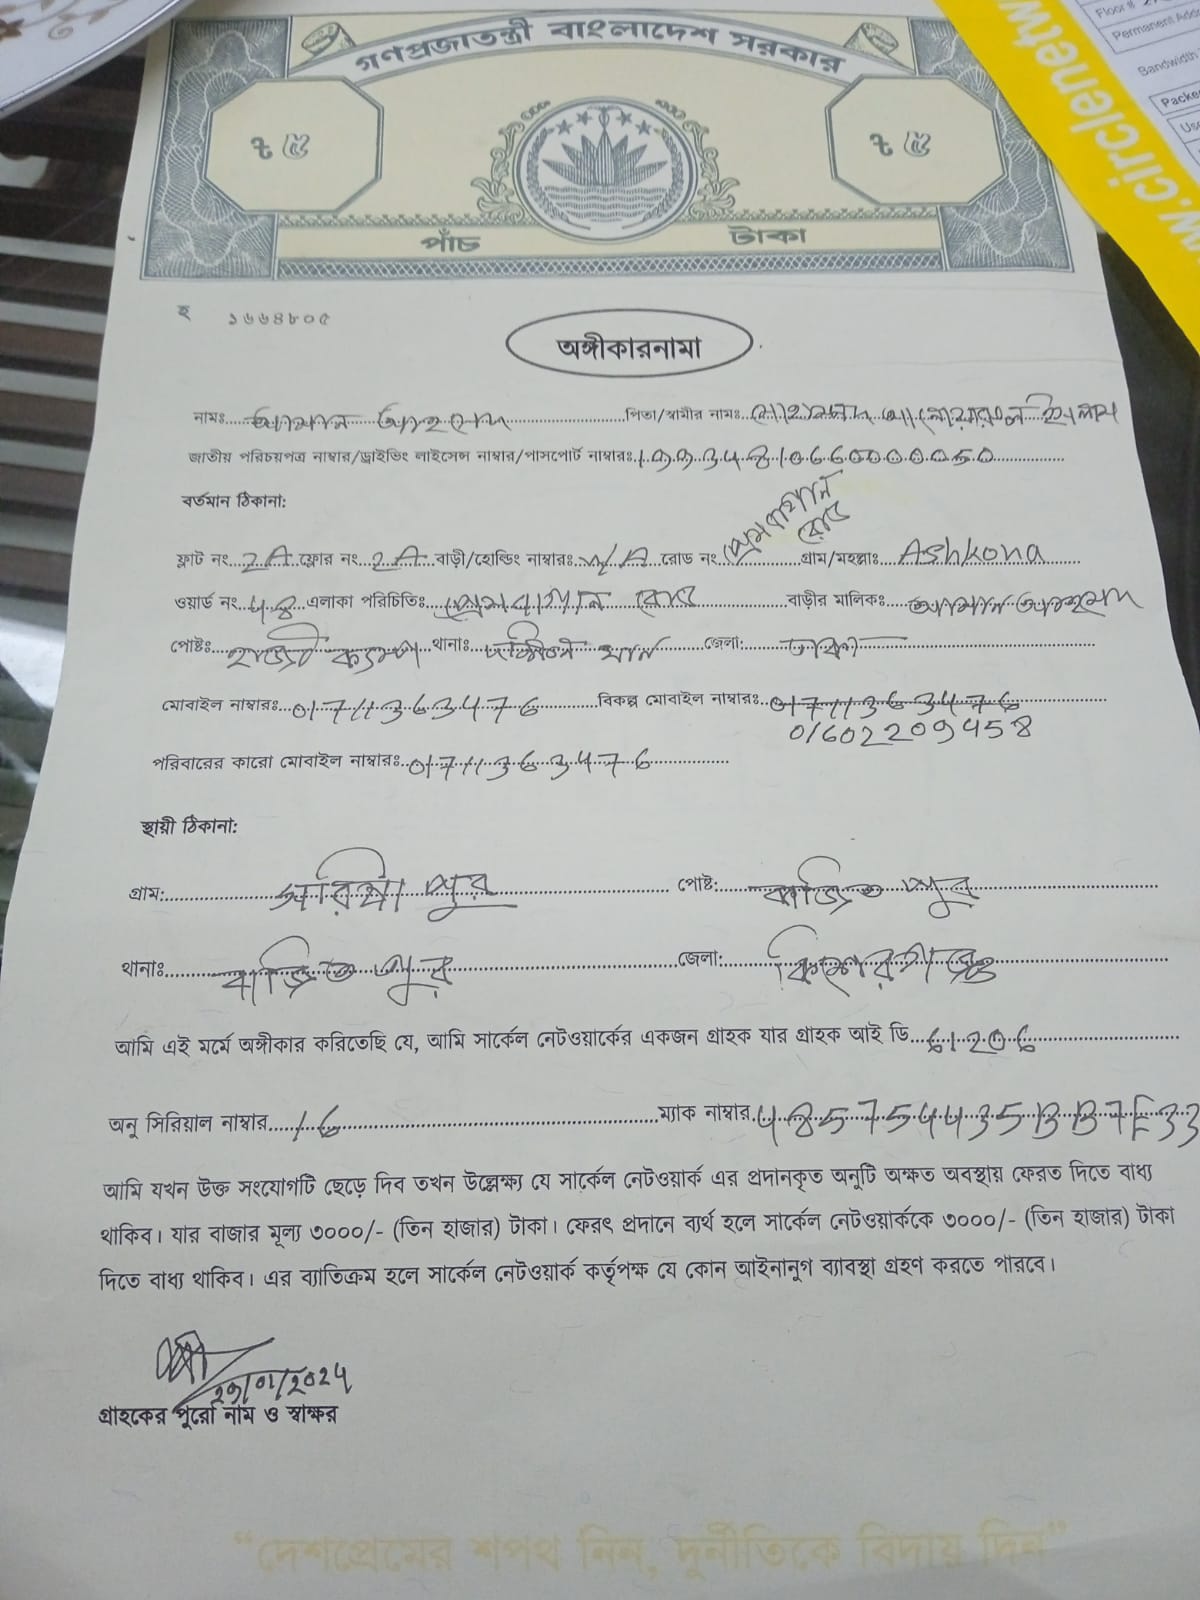 গণপ্রজাতন্ত্রী বাংলাদেশ সরকার
৳ ৫ ৳ ৫
পাঁচ টাকা
হ ১৬৬৪৮০৫
অঙ্গীকারনামা
নামঃ আমান আহমেদ পিতা/স্বামীর নামঃ মোহাম্মদ ইসলাম
জাতীয় পরিচয়পত্র নাম্বার/ড্রাইভিং লাইসেন্স নাম্বার/পাসপোর্ট নাম্বারঃ
বর্তমান ঠিকানা:
ফ্লাট নং 2A ফ্লোর নং 2A বাড়ী/হোল্ডিং নাম্বারঃ N/A রোড নং প্রেমবাগান রোড গ্রাম/মহল্লাঃ Ashkona
ওয়ার্ড নং 48 এলাকা পরিচিতিঃ প্রেমবাগান রোড বাড়ীর মালিকঃ আমান আহমেদ
পোষ্টঃ হাজী ক্যাম্প থানাঃ দক্ষিনখান জেলা: ঢাকা
মোবাইল নাম্বারঃ 01711363476 বিকল্প মোবাইল নাম্বারঃ 01711363476
01602209458
পরিবারের কারো মোবাইল নাম্বারঃ 01711363476
স্থায়ী ঠিকানা:
গ্রাম: পোষ্ট: বাজিতপুর
থানাঃ বাজিতপুর জেলা: কিশোরগঞ্জ
আমি এই মর্মে অঙ্গীকার করিতেছি যে, আমি সার্কেল নেটওয়ার্কের একজন গ্রাহক যার গ্রাহক আই ডি 61206
অনু সিরিয়াল নাম্বার 16 ম্যাক নাম্বার 485754435BB7E33
আমি যখন উক্ত সংযোগটি ছেড়ে দিব তখন উল্লেক্ষ্য যে সার্কেল নেটওয়ার্ক এর প্রদানকৃত অনুটি অক্ষত অবস্থায় ফেরত দিতে বাধ্য
থাকিব। যার বাজার মূল্য ৩০০০/- (তিন হাজার) টাকা। ফেরৎ প্রদানে ব্যর্থ হলে সার্কেল নেটওয়ার্ককে ৩০০০/- (তিন হাজার) টাকা
দিতে বাধ্য থাকিব। এর ব্যাতিক্রম হলে সার্কেল নেটওয়ার্ক কর্তৃপক্ষ যে কোন আইনানুগ ব্যাবস্থা গ্রহণ করতে পারবে।
/01/2024
গ্রাহকের পুরো নাম ও স্বাক্ষর
"দেশপ্রেমের শপথ নিন, দুর্নীতিকে বিদায় দিন"
w.circlenetw
Floor #
Permanent Addr
Bandwidth
Packe
Use